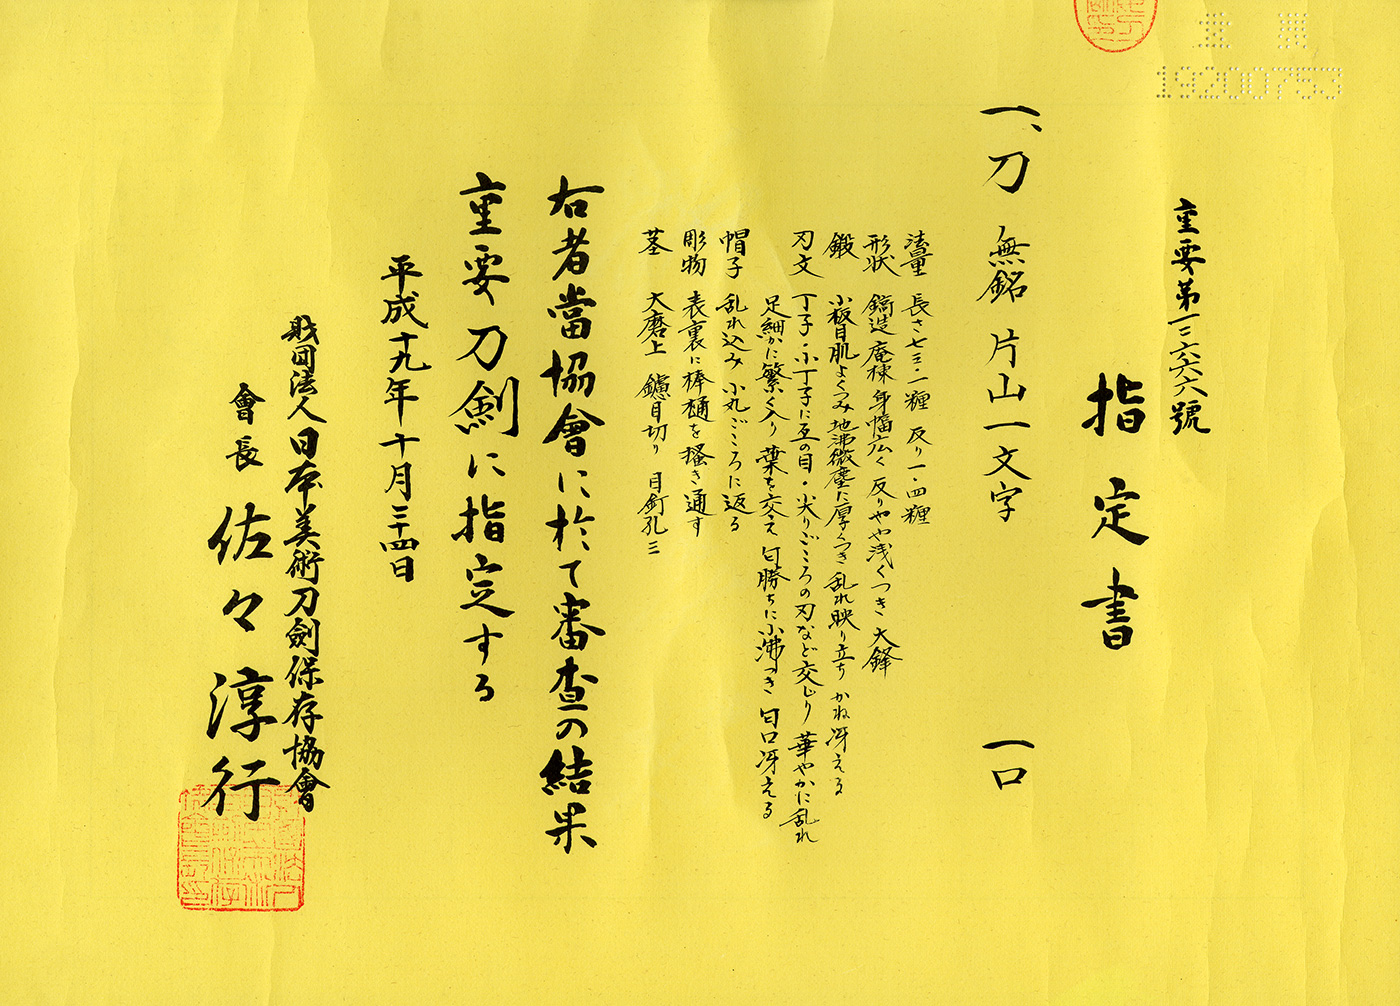 19200753
重要第一三六六六號
指定書
一、刀 無銘 片山一文字 一口
法量 長さ七三・一糎 反り一・四糎
形状 鎬造 庵棟 身幅広く 反りやや浅くつき 大鋒
鍛 小板目肌よくつみ 地沸微塵に厚くつき 乱れ映り立ち かね冴える
刃文 丁子・小丁子に互の目・尖りごころの刃など交じり 華やかに乱れ
足細かに繁く入り 葉を交え 匂勝ちに小沸つき 匂口冴える
帽子 乱れ込み 小丸ごころに返る
彫物 表裏に棒樋を掻き通す
茎 大磨上 鑢目切り 目釘孔三
右者當協會に於て審査の結果
重要刀剣に指定する
平成十九年十月二十四日
財団法人日本美術刀劍保存協會
會長 佐々淳行